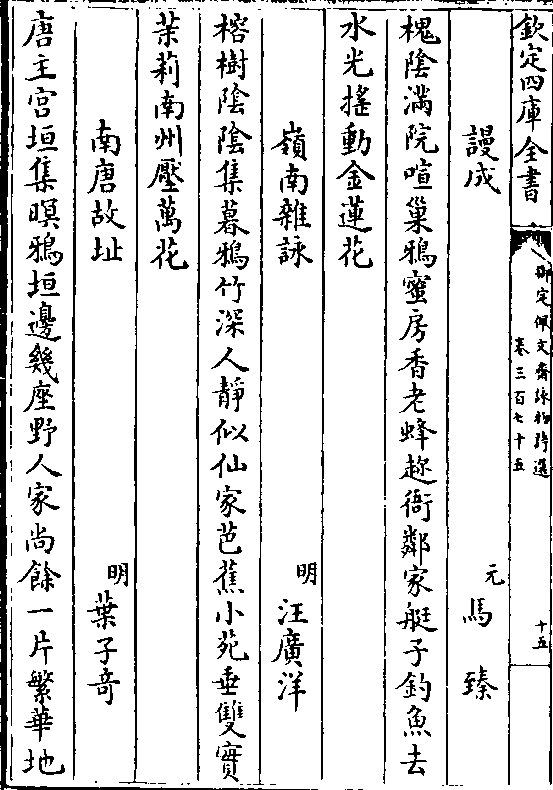 欽定四庫全書
御定佩文齋詠物詩選
卷三百七十五
十五
謾成
元
馬臻
槐陰滿院喧巢鴉蜜房香老蜂趂衙鄰家艇子釣魚去
水光搖動金蓮花
嶺南雜詠
明
汪廣洋
榕樹陰陰集暮鴉竹深人靜似仙家芭蕉小苑垂雙實
茉莉南州壓萬花
南唐故址
明
葉子竒
唐主宫垣集暝鴉垣邊幾座野人家尚餘一片繁華地